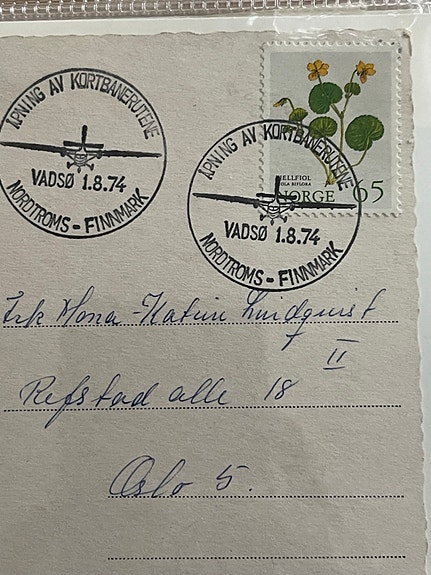 ÅPNING AV KORTBANERUTENE
VADSØ 1.8.74
NORDTROMS - FINNMARK
ÅPNING AV KORTBANERUTENE
VADSØ 1.8.74
NORDTROMS - FINNMARK
FJELLFIOL
VIOLA BIFLORA
NORGE 65
Frk Mona-Katrin Lindquist
II
Refstad alle 18
Oslo 5.